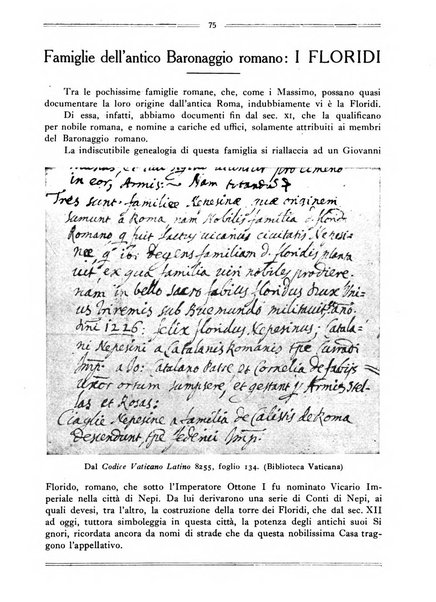 75
Famiglie dell'antico Baronaggio romano: I FLORIDI
Tra le pochissime famiglie romane, che, come i Massimo, possano quasi
documentare la loro origine dall'antica Roma, indubbiamente vi è la Floridi.
Di essa, infatti, abbiamo documenti fin dal sec. XI, che la qualificano
per nobile romana, e nomine a cariche ed uffici, solamente attribuiti ai membri
del Baronaggio romano.
La indiscutibile genealogia di questa famiglia si riallaccia ad un Giovanni
in eor. Armis. Nam
Tres sunt familiæ Nepesinæ, quæ originem
sumunt à Roma nam Nobilis familia de floridis
Romano q fuit factus vicarius civitatis Nepesi-
næ q io: Degens familiam de floridis planta
uit, ex qua familia viri nobiles prodiere
nam in bello sacro fabius floridus Dux
Triremis sub Buemundo militauit
dñi 1226: felix floridus Nepesinus; Catala-
ni Nepesini à Catalanis Romanis tpe Curradi
Imp. a Petro et Cornelia de fabijs
uxor ortum sumpsere, et gestant Armis Stel-
las et Rosas:
Ciaglie Nepesine à familia de Calistis de Roma
descendunt tpe federici Imp.
Dal Codice Vaticano Latino 8255, foglio 134. (Biblioteca Vaticana)
Florido, romano, che sotto l'Imperatore Ottone I fu nominato Vicario Im-
periale nella città di Nepi. Da lui derivarono una serie di Conti di Nepi, ai
quali devesi, tra l'altro, la costruzione della torre dei Floridi, che dal sec. XII
ad oggi, tuttora simboleggia in questa città, la potenza degli antichi suoi Si
gnori, ricordata ancora da nomi di strade che da questa nobilissima Casa trag-
gono l'appellativo.